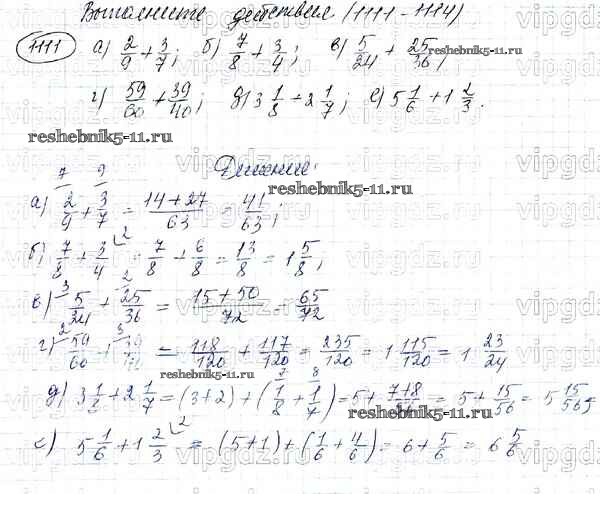 Выполните действия (1111-1114)
1111 а) 2/9 + 3/7; б) 7/8 + 3/4; в) 5/24 + 25/36;
г) 59/60 + 39/40; д) 3 1/8 + 2 1/7; е) 5 1/6 + 1 2/3.
reshebnik5-11.ru
reshebnik5-11.ru
Решение:
reshebnik5-11.ru
а) 2/9 + 3/7 = 14+27/63 = 41/63;
б) 7/8 + 3/4 = 7/8 + 6/8 = 13/8 = 1 5/8;
в) 5/24 + 25/36 = 15+50/72 = 65/72
г) 59/60 + 39/40 = 118/120 + 117/120 = 235/120 = 1 115/120 = 1 23/24
reshebnik5-11.ru
д) 3 1/8 + 2 1/7 = (3+2) + (1/8 + 1/7) = 5 + 7+8/56 = 5 + 15/56 = 5 15/56;
е) 5 1/6 + 1 2/3 = (5+1) + (1/6 + 4/6) = 6 + 5/6 = 6 5/6
vipgdz.com